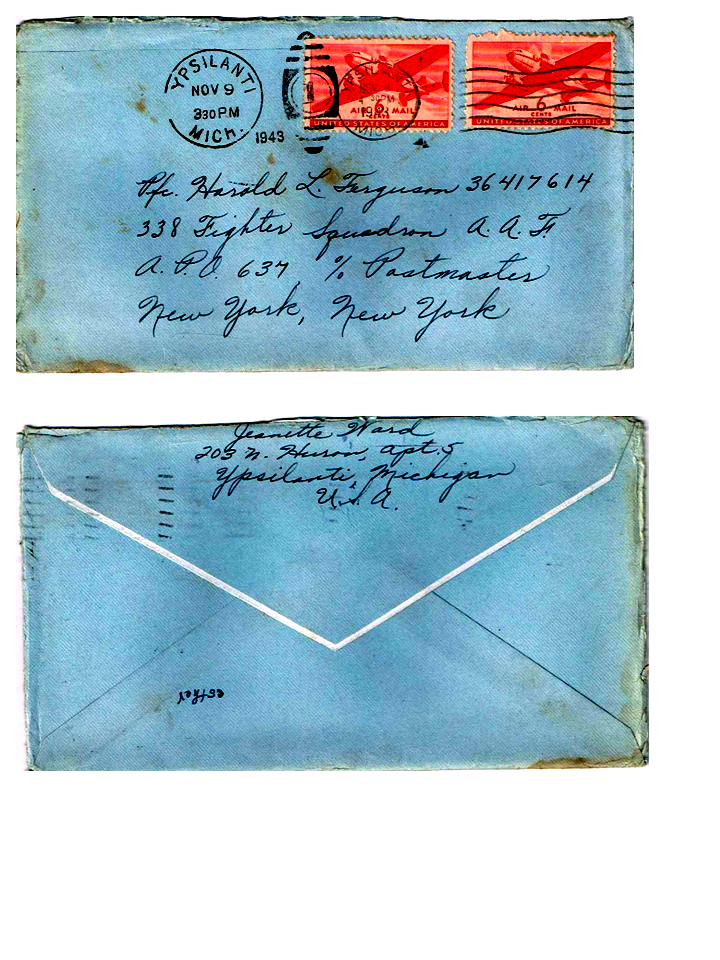 YPSILANTI
NOV 9
330 P.M
MICH.
1943
YPSILANTI
30 PM
MICH
AIR 6 MAIL
UNITED STATES OF AMERICA
AIR 6 MAIL
CENTS
UNITED STATES OF AMERICA
Pfc. Harold L. Ferguson 36417614
338 Fighter Squadron A. A. F.
A. P. O. 637 % Postmaster
New York, New York
Jeanette Ward
203 N. Huron, apt. 5
Ypsilanti, Michigan
U.S.A.
esther